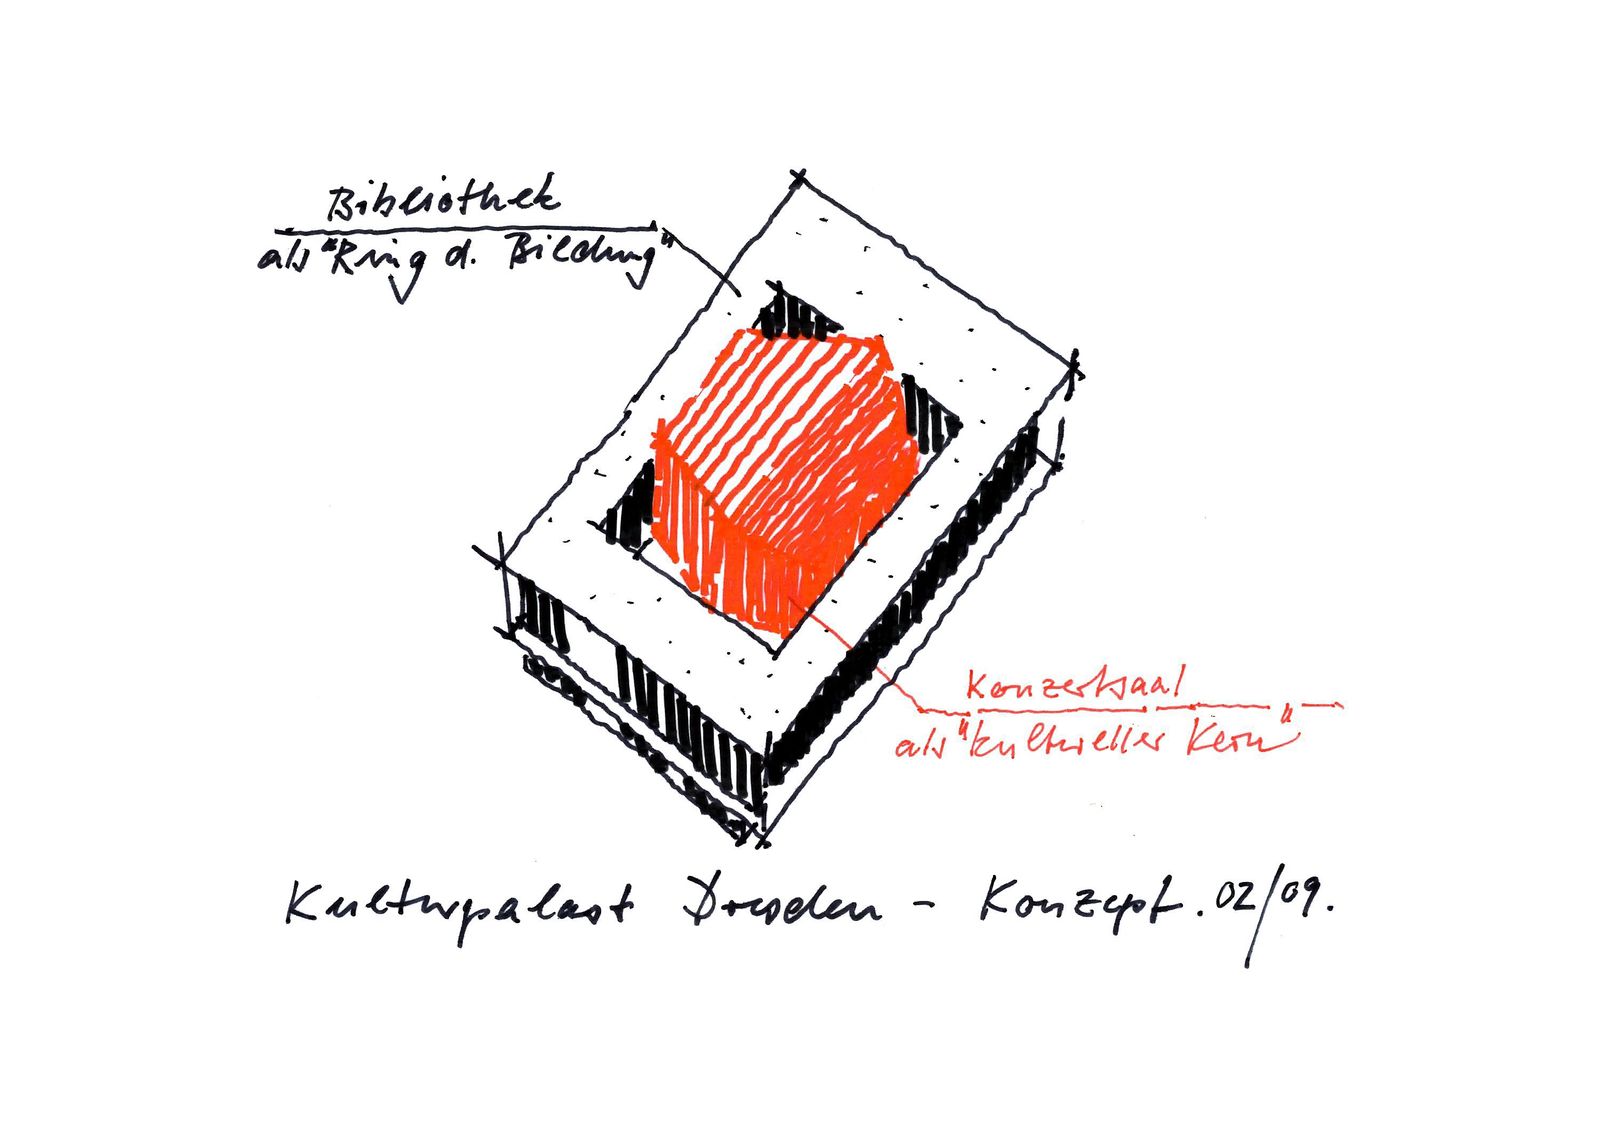 Bibliothek
als "Ring d. Bildung"
Konzertsaal
als "kultureller Kern"
Kulturpalast Dresden - Konzept. 02/09.